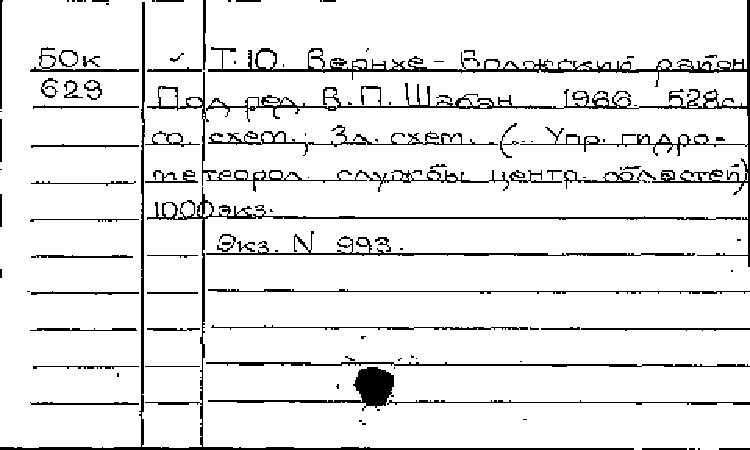 50к ✓ Т.10. Верхне-Волжский район
629 Под ред. В.П. Шабан 1966 528с.
со схем.; 3л. схем. (Упр. гидро-
метеорол. службы центр. областей)
1000 экз.
Экз. N 993.